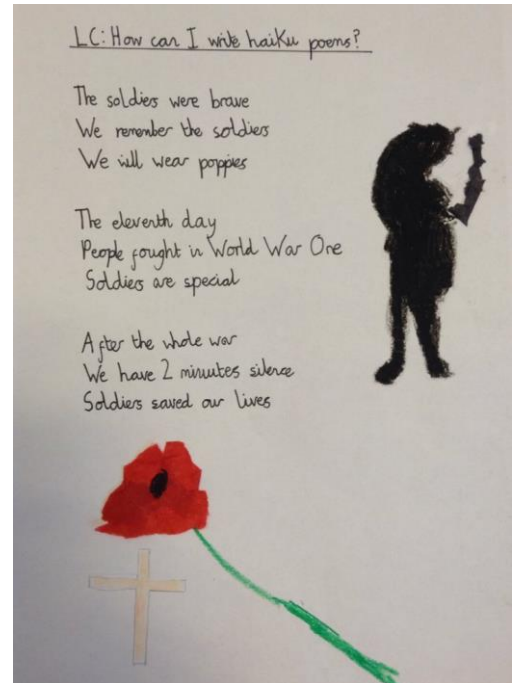 LC: How can I write haiku poems?
The soldiers were brave
We remember the soldiers
We will wear poppies
The eleventh day
People fought in World War One
Soldiers are special
After the whole war
We have 2 minutes silence
Soldiers saved our lives